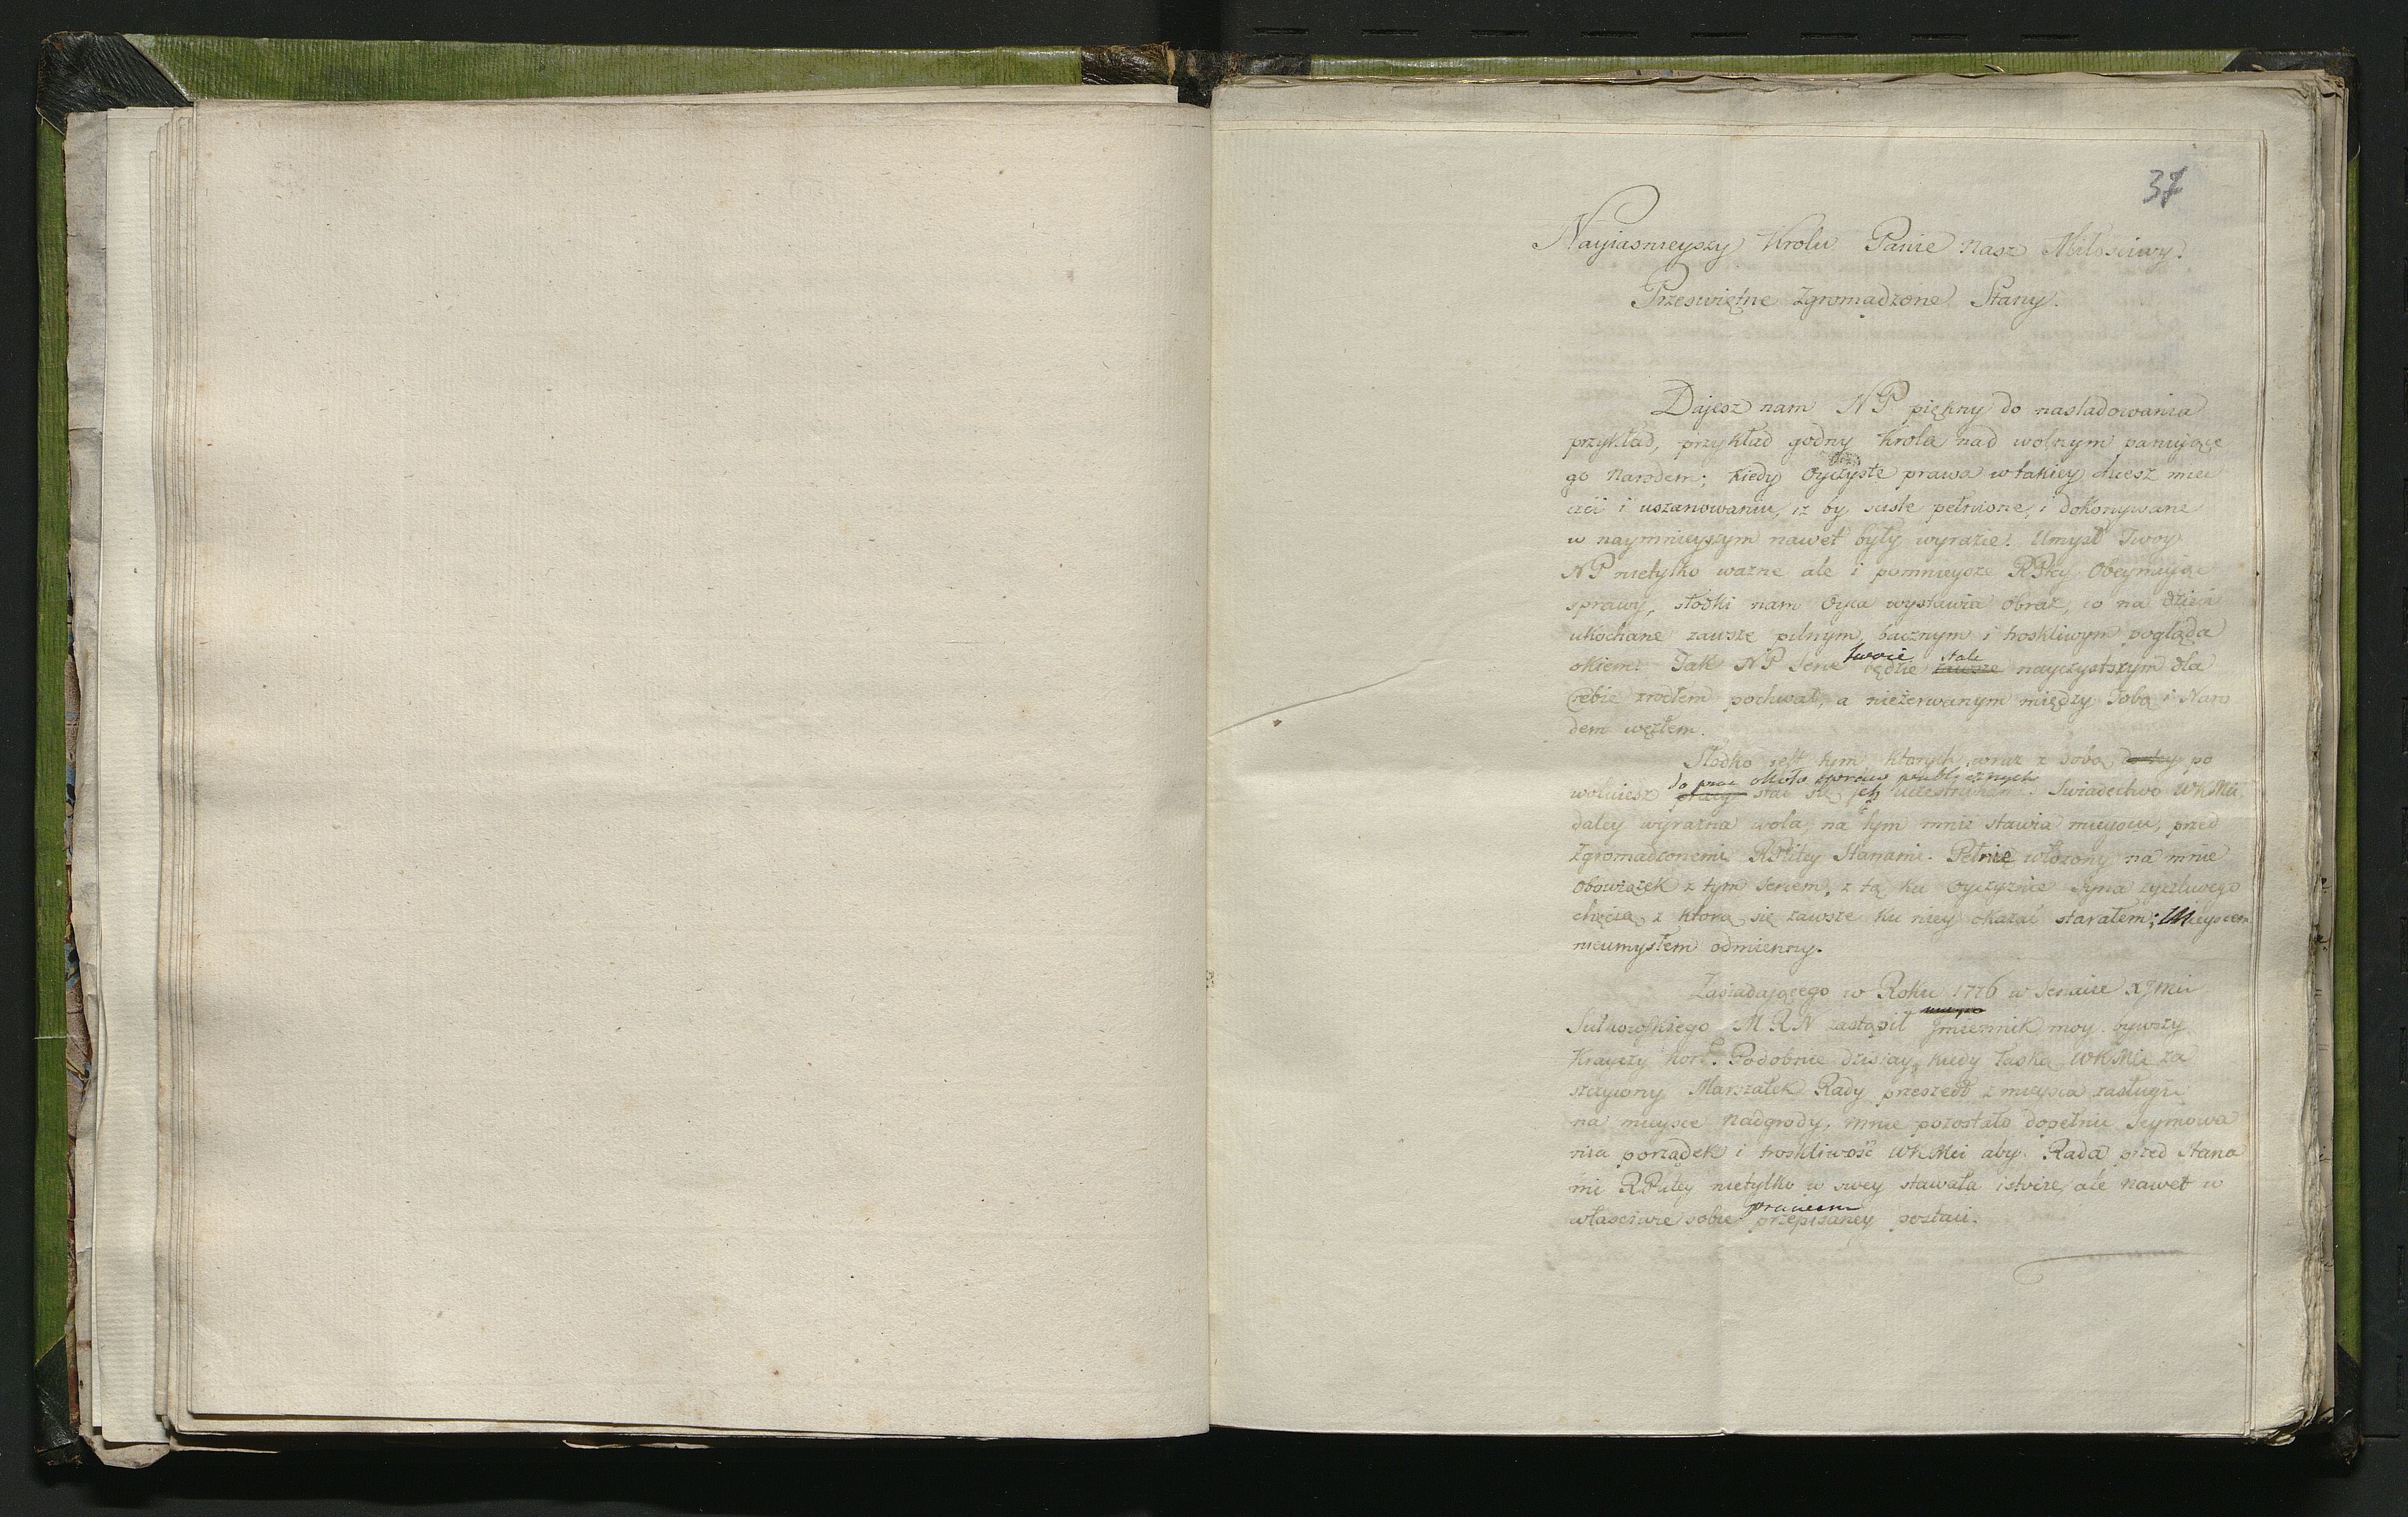 37
Nayiasnieyszy Krolu Panie nasz Miłosciwy.
Przeswiętne Zgromadzone Stany.
Dajesz nam NP piękny do nasladowania
przykład, przykład godny Krola nad wolnym panuiące
go Narodem; kiedy Oyczyste prawa w takiey chcesz miec
czci i uszanowaniu, iz by scisle pełnione, i dokonywane
w naymnieyszym nawet były wyrazie. Umysł Twoy
NP nietylko wazne ale i pomnieysze RPtey Obeymuiąc
sprawy, słodki nam Oyca wystawia Obraz, co na dzieci
ukochane zawsze pilnym, bacznym i troskliwym pogląda
okiem. Tak NP serce twoie będzie stale zawsze nayczystszym dla
Ciebie zrodłem pochwał, a niezerwanym między Tobą i Naro
dem węzłem.
Słodko jest tym ktorych wraz z sobą do tey po
wołuiesz do prac około spraw publicznych pracy stac się jch uczestnikami. Swiadectwo WKMci
daley wyrazna wola, na tym mnie stawia mieyscu, przed
Zgromadzonemi RPlitey Stanami. Pełnię włozony na mnie
Obowiązek z tym sercem, z tą ku Oyczyznie Syna zyczliwego
chęcią, z ktorą się zawsze ku niey okazac starałem; Mieyscem
nieumysłem odmienny.
Zasiadającego w Roku 1776 w Senacie XJMci
Sułkowskiego MRN zastąpił Jmiennik moy bywszy
Krayczy Kor. Podobnie dzisiay kiedy łaską WKMci za
szczycony Marszałek Rady przeszedł z mieysca zasługi
na mieysce nadgrody, mnie pozostało dopełnic Seymowa
nia porządek i troskliwość WKMci aby Rada przed Stana
mi RPlitey nietylko w swey stawała istocie, ale nawet w
własciwie sobie prawem przepisaney postaci.